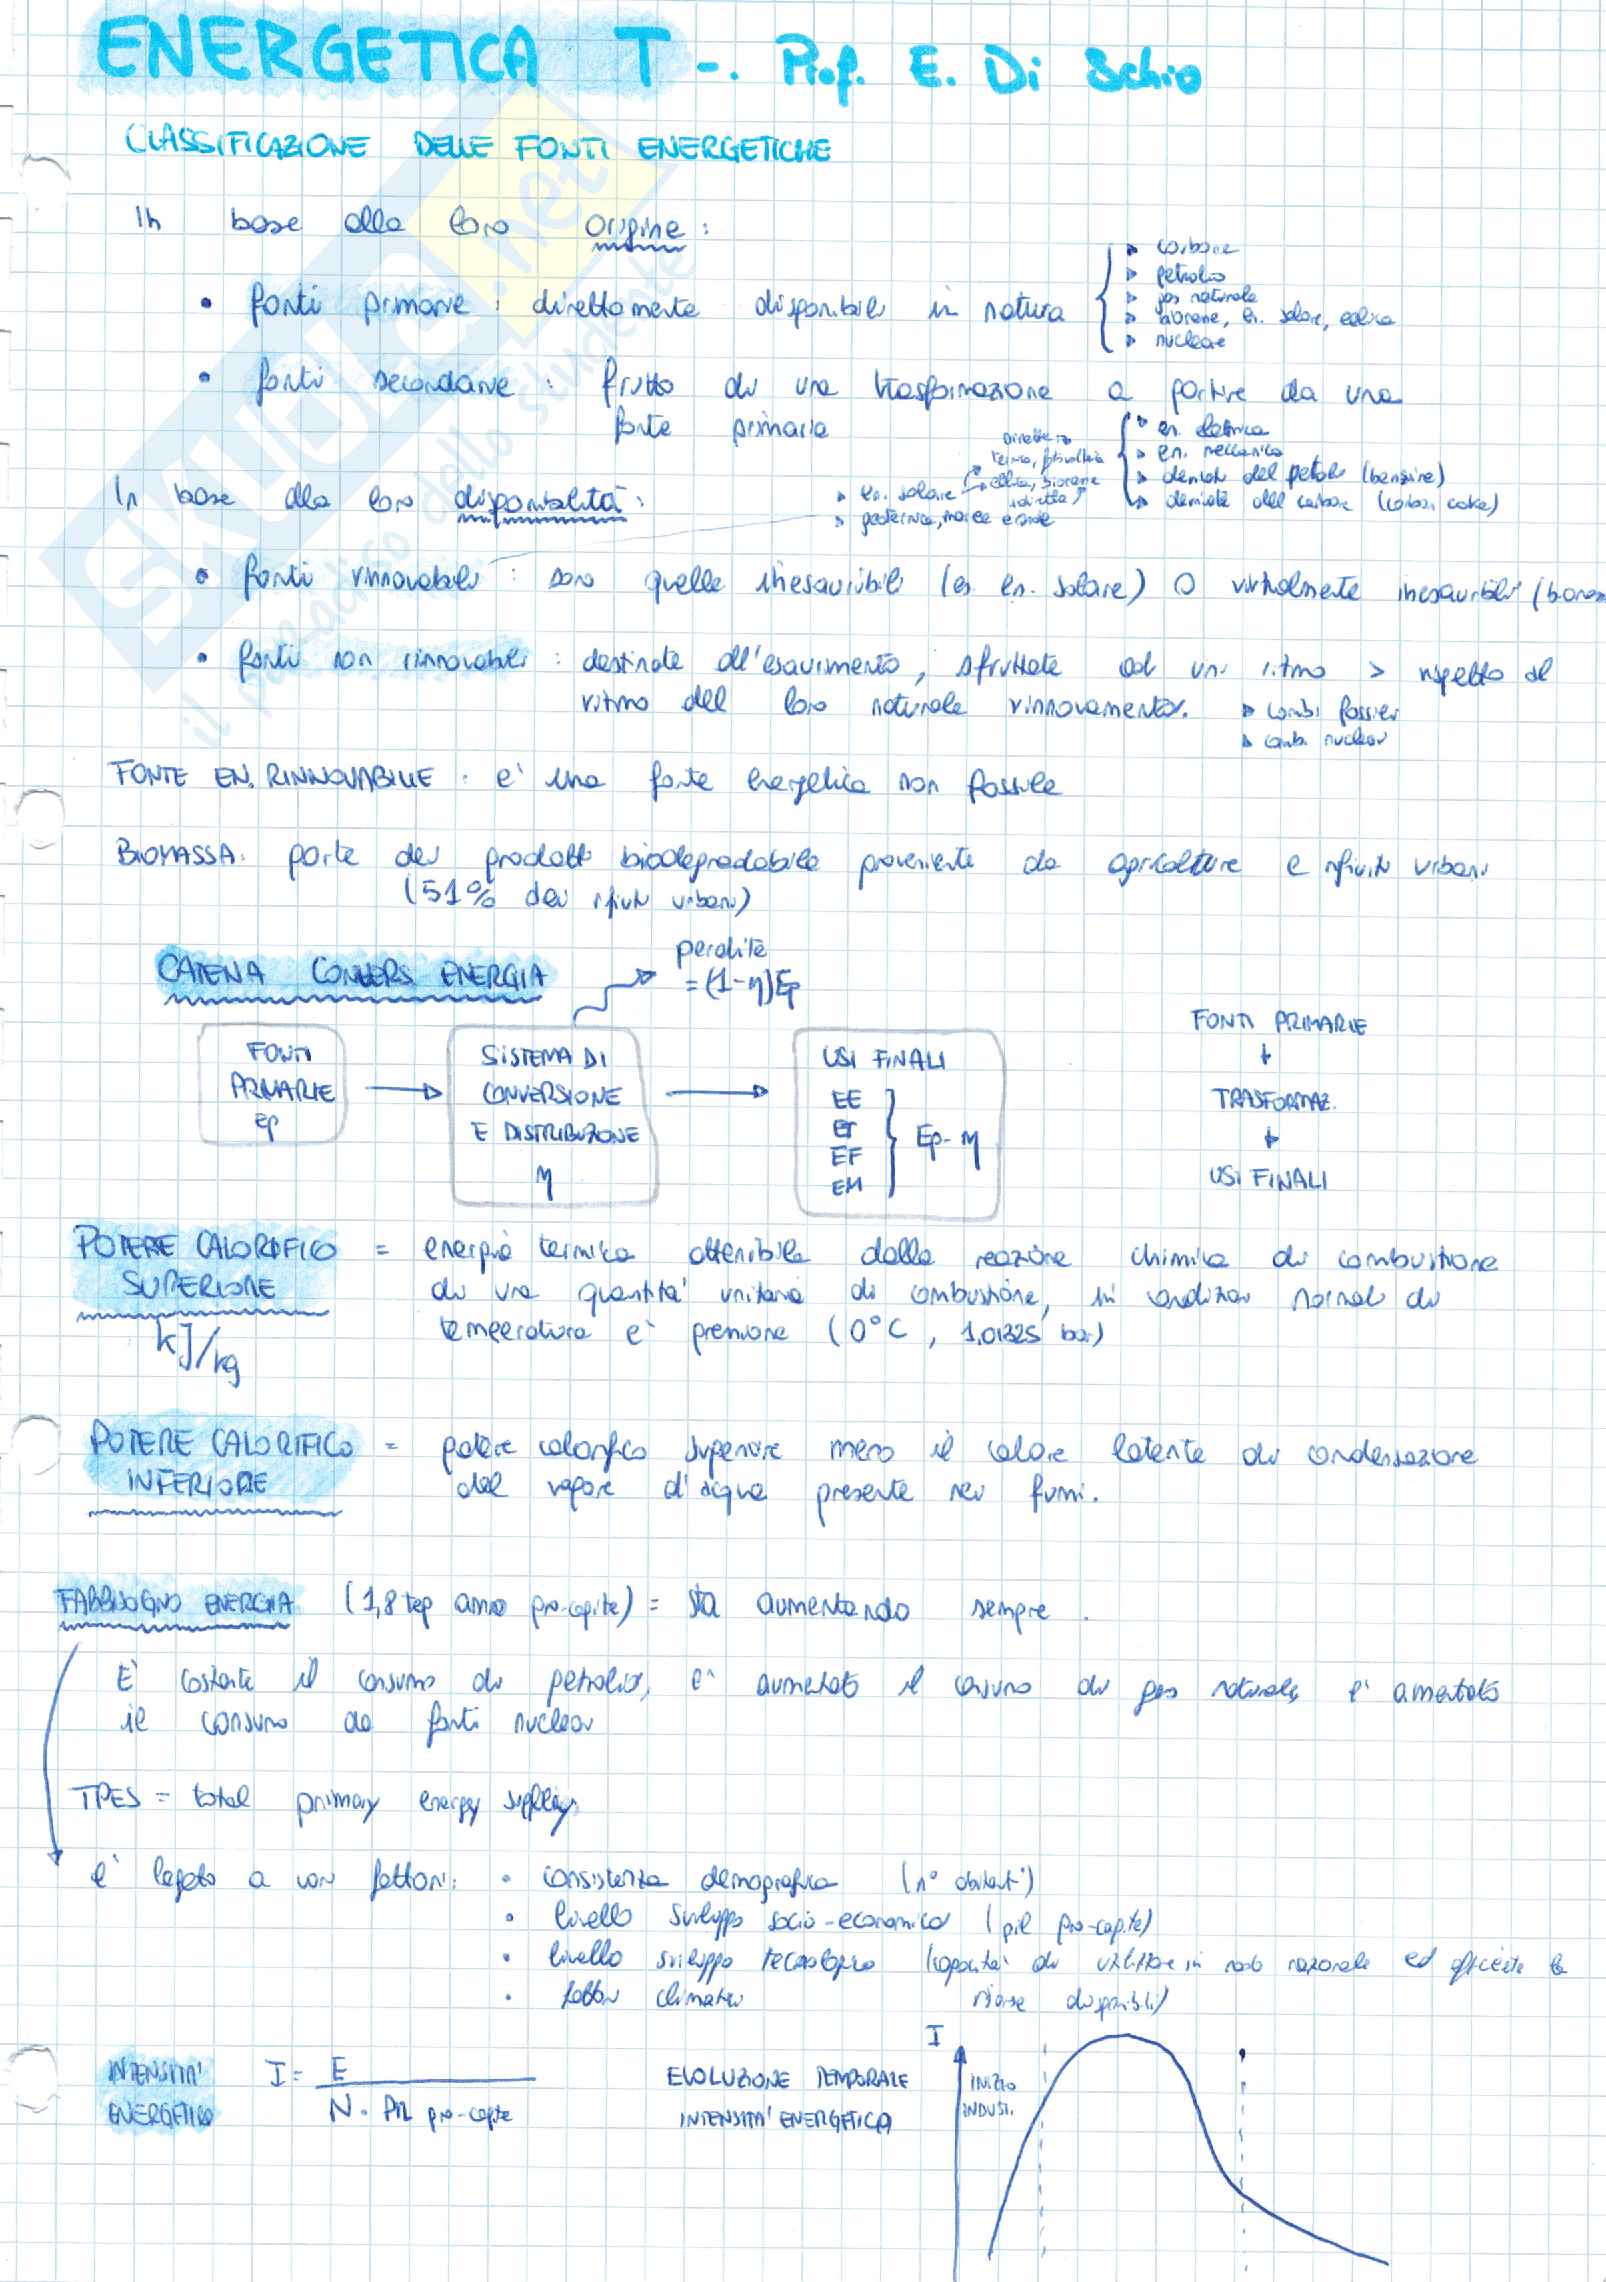 ENERGETICA T -. Prof. E. Di Schio
CLASSIFICAZIONE DELLE FONTI ENERGETICHE
In base alla loro origine:
• fonti primarie: direttamente disponibili in natura
▹ carbone
▹ petrolio
▹ gas naturale
▹ biomasse, en. solare, eolica
▹ nucleare
• fonti secondarie: frutto di una trasformazione a partire da una
fonte primaria
▹ en. elettrica
▹ en. meccanica
▹ derivati del petrolio (benzine)
▹ derivati del carbone (carbon coke)
In base alla loro disponibilità:
▹ en. solare
dirette
termica, fotovoltaica
eolica, biomasse
indirette
▹ geotermica, maree e onde
• fonti rinnovabili: sono quelle inesauribili (es. en. solare) o virtualmente inesauribili (biomas
• fonti non rinnovabili: destinate all'esaurimento, sfruttate ad un ritmo > rispetto al
ritmo del loro naturale rinnovamento. ▹ comb. fossili
▹ comb. nucleari
FONTE EN. RINNOVABILE: e' una fonte energetica non fossile
BIOMASSA: parte dei prodotti biodegradabile proveniente da agricolture e rifiuti urbani
(51% dei rifiuti urbani)
CATENA CONVERS ENERGIA
perdite
=(1-η)Ep
FONTI
PRIMARIE
Ep
SISTEMA DI
CONVERSIONE
E DISTRIBUZIONE
η
USI FINALI
EE
ET
EF
EM
Ep·η
FONTI PRIMARIE
TRASFORMAZ.
USI FINALI
POTERE CALORIFICO = energia termica ottenibile dalla reazione chimica di combustione
SUPERIORE di una quantità unitaria di combustione, in condizioni normali di
temperatura e' pressione (0°C, 1,01325 bar)
kJ/kg
POTERE CALORIFICO = potere calorifico superiore meno il calore latente di condensazione
INFERIORE del vapore d'acqua presente nei fumi.
FABBISOGNO ENERGIA (1,8 tep anno pro-capite) = sta aumentando sempre.
E' costante il consumo di petrolio, e' aumentato il consumo di gas naturale, e' aumentato
il consumo da fonti nucleari
TPES = total primary energy supply
e' legato a vari fattori: • consistenza demografica (n° abitanti)
• livello sviluppo socio-economico (pil pro-capite)
• livello sviluppo tecnologico (capacita' di utilizzare in modo razionale ed efficiente le
risorse disponibili)
• fattori climatici
INTENSITA'
ENERGETICA
I = E
N · PIL pro-capite
EVOLUZIONE TEMPORALE
INTENSITA' ENERGETICA
I
INIZIO
INDUST.
SKUOLA.net
il paradiso dello studente